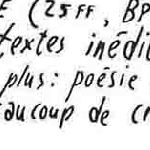 (25FF, BP
textes inédi
plus: poésie
aucoup de c